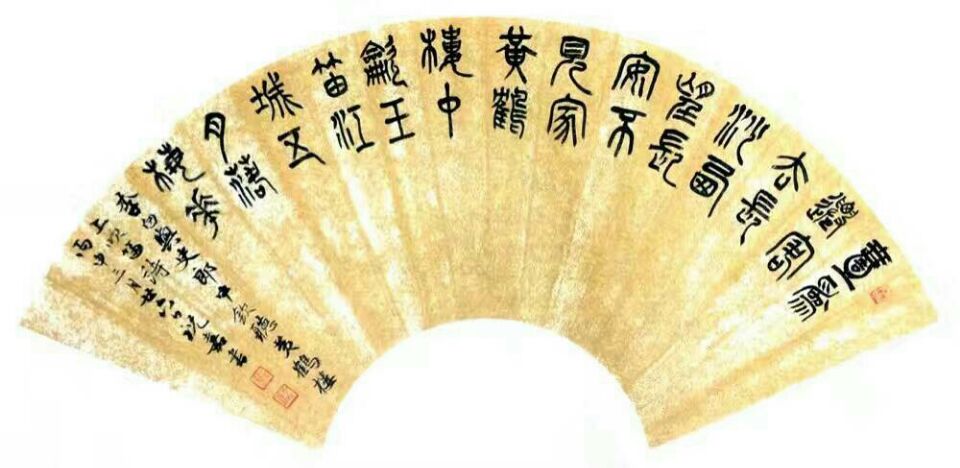 壹為
遷客
去長
沙西
望長
安不
見家
黃鶴
樓中
龡玉
笛江
城五
月落
梅華
李白與史郎中欽聽黃鶴樓
上吹笛詩
丙申三月